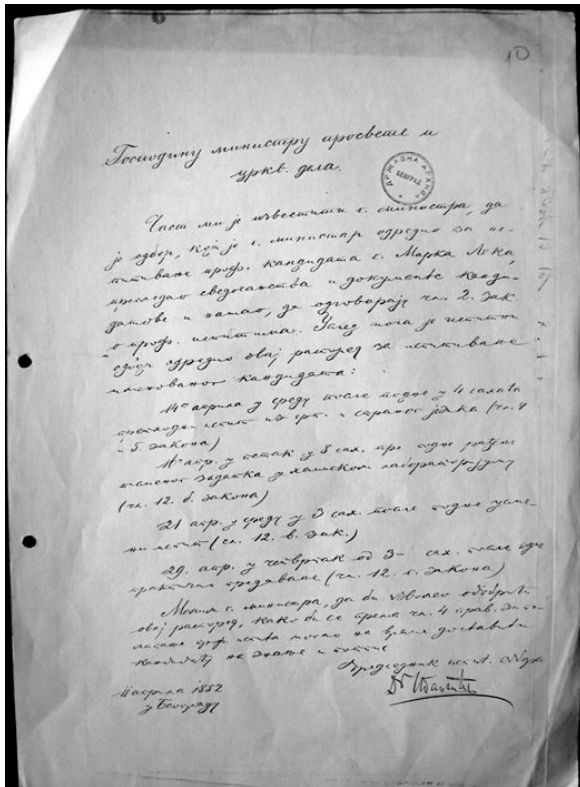 10
Господину министру просвете и
цркв. дела.
ДРЖАВНА АРХИВА
БЕОГРАД
Част ми је известити г. министра, да
је одбор, који је г. министар одредио за ис-
питивање проф. кандидата г. Марка Лека,
прегледао сведочанства и документе канди-
датове и нашао, да одговарају чл. 2. зак.
о проф. испитима. Услед тога је испитни
одбор одредио овај распоред за испитивање
именованог кандидата:
14. априла у среду после подне у 4 сахата
претходни испит из срп. и страног језика (чл. 4
и 5. закона)
апр. у петак у 8 сах. пре подне
писменог задатка у хемиском лабораторијуму
(чл. 12. б. закона)
21 апр. у среду у 3 сах. после подне усме-
ни испит (чл. 12. в. зак.)
29. апр. у четвртак од 3 сах. после подне
практично предавање (чл. 12. г. закона)
Молим г. министра, да би изволео одобрити
овај распоред, како би се према чл. 4 прав. за по-
лагање проф. испита могло на време доставити
кандидату на знање и
Председник исп. одбора
11 априла 1882
у Београду
Dr